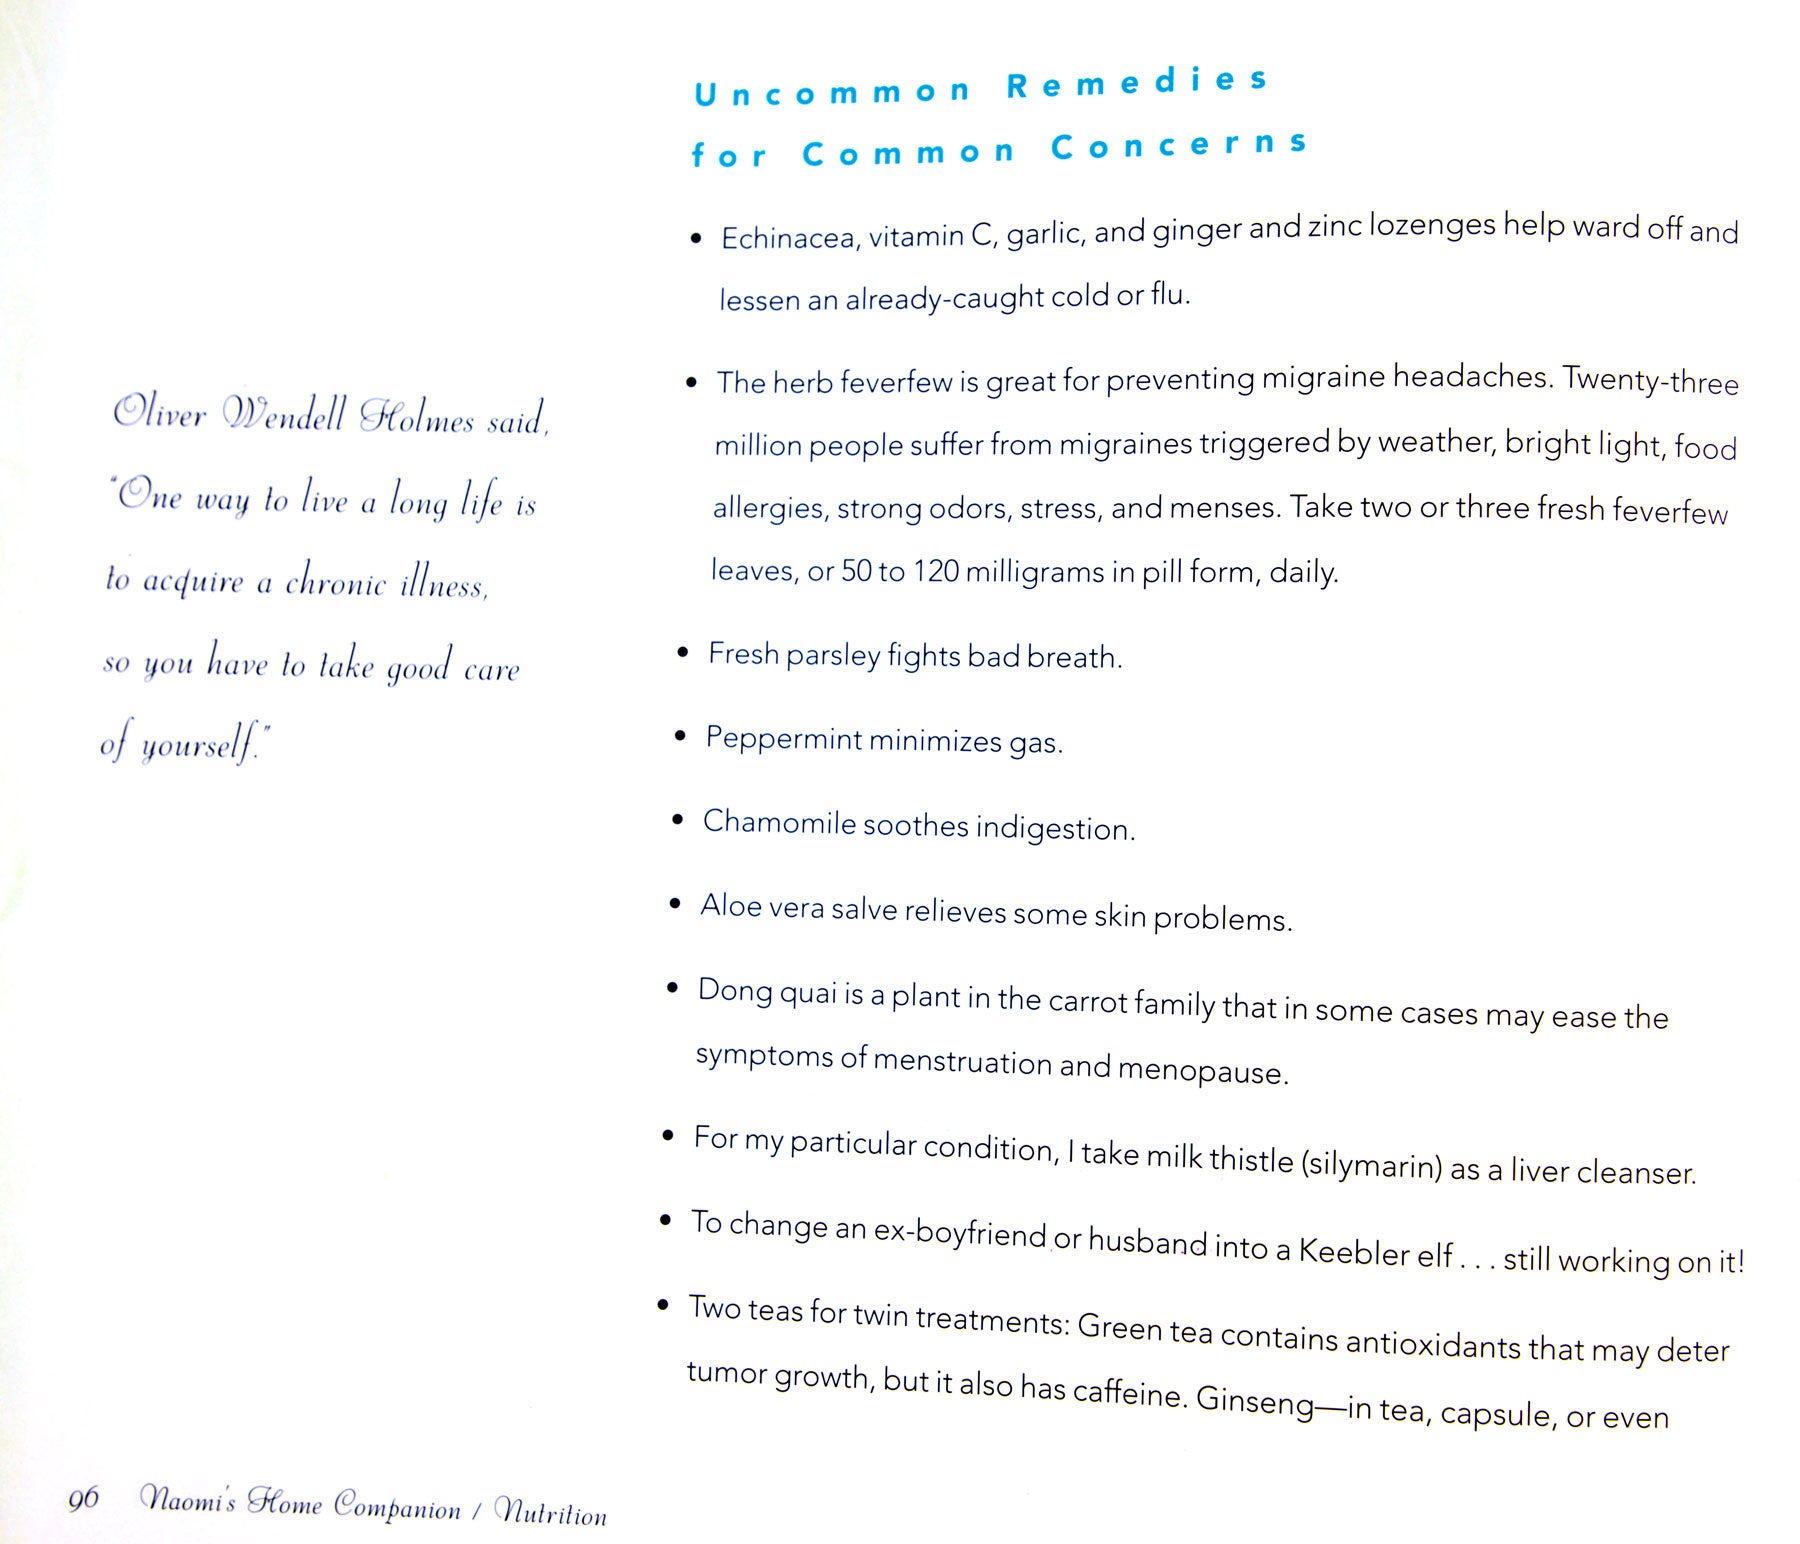 Uncommon Remedies
for Common Concerns
• Echinacea, vitamin C, garlic, and ginger and zinc lozenges help ward off and
lessen an already-caught cold or flu.
• The herb feverfew is great for preventing migraine headaches. Twenty-three
million people suffer from migraines triggered by weather, bright light, food
allergies, strong odors, stress, and menses. Take two or three fresh feverfew
leaves, or 50 to 120 milligrams in pill form, daily.
• Fresh parsley fights bad breath.
• Peppermint minimizes gas.
• Chamomile soothes indigestion.
• Aloe vera salve relieves some skin problems.
• Dong quai is a plant in the carrot family that in some cases may ease the
symptoms of menstruation and menopause.
• For my particular condition, I take milk thistle (silymarin) as a liver cleanser.
• To change an ex-boyfriend or husband into a Keebler elf . . . still working on it!
• Two teas for twin treatments: Green tea contains antioxidants that may deter
tumor growth, but it also has caffeine. Ginseng—in tea, capsule, or even
Oliver Wendell Holmes said,
"One way to live a long life is
to acquire a chronic illness,
so you have to take good care
of yourself."
96 Naomi's Home Companion / Nutrition